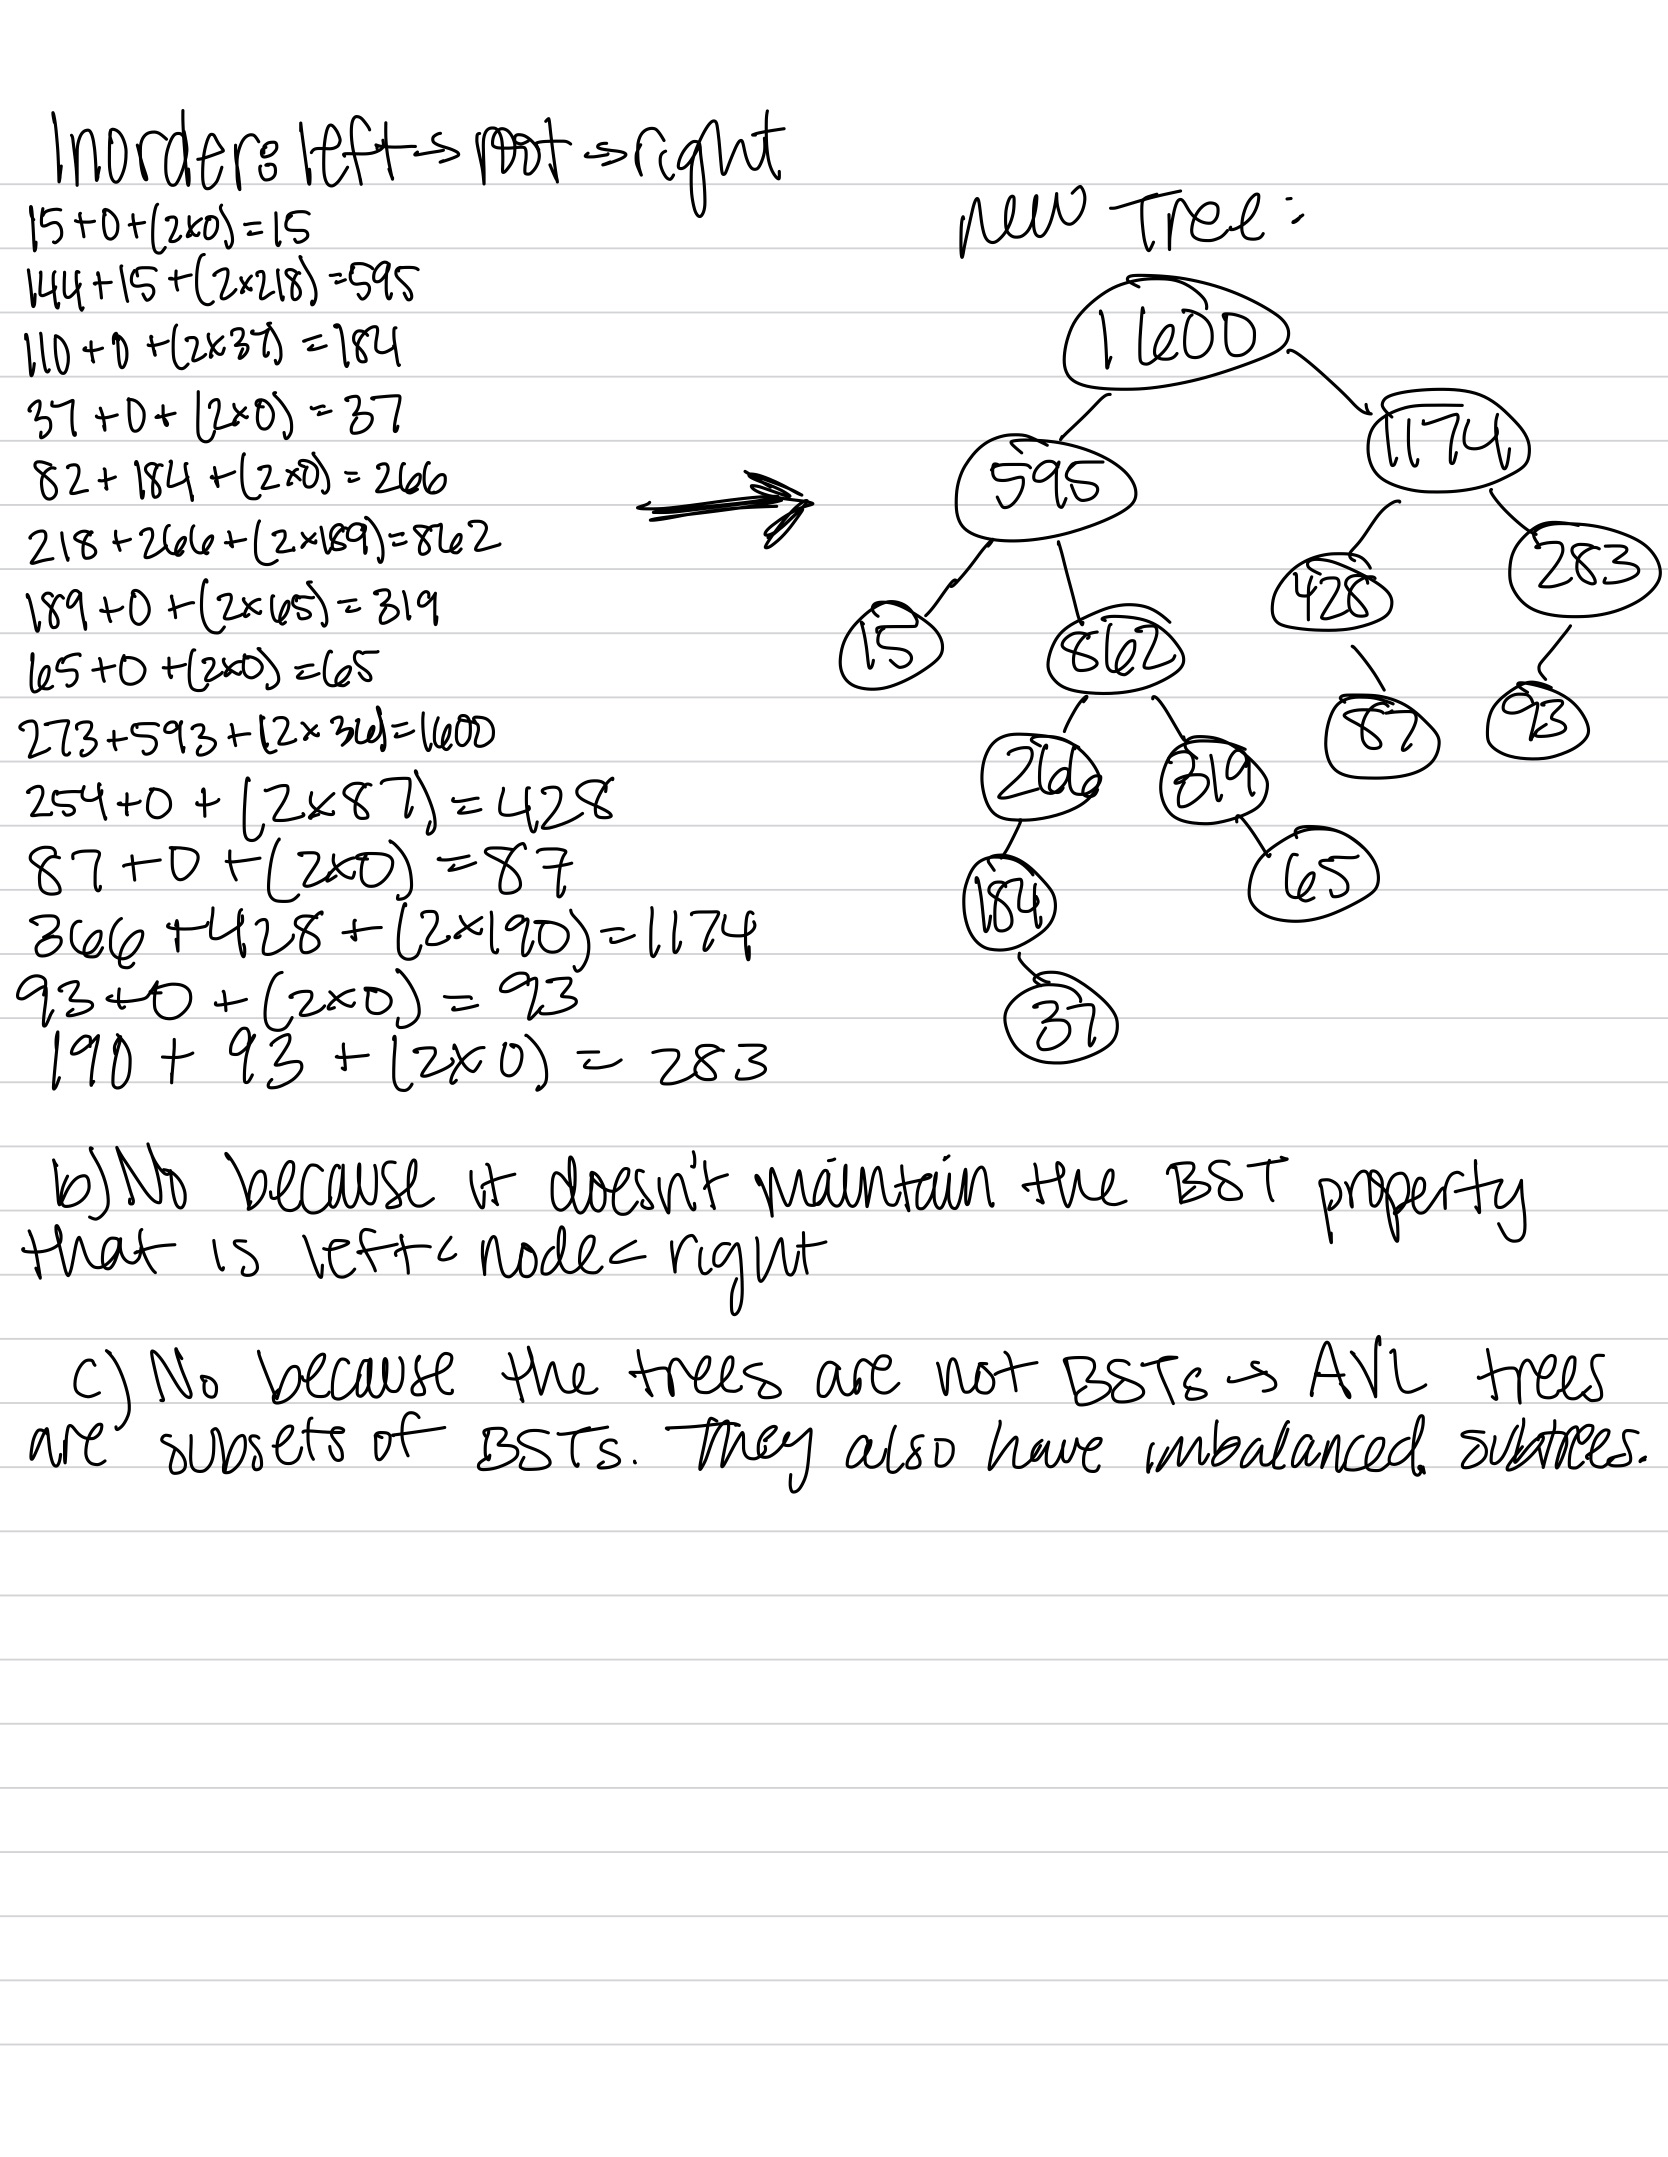 Inorder: left → root → right
15+0+(2x0)=15
144+15+(2x218)=595
110+0+(2x37)=184
37+0+(2x0)=37
82+184+(2x0)=266
218+266+(2x189)=862
189+0+(2x65)=319
65+0+(2x0)=65
273+593+(2x366)=1600
254+0+(2x87)=428
87+0+(2x0)=87
366+428+(2x190)=1174
93+0+(2x0)=93
190+93+(2x0)=283
New Tree:
1600
1174
595
283
428
15
862
87
93
266
319
184
65
37
b) No because it doesn't maintain the BST property
that is left < node < right
c) No because the trees are not BSTs → AVL trees
are subsets of BSTs. They also have imbalanced subtrees.